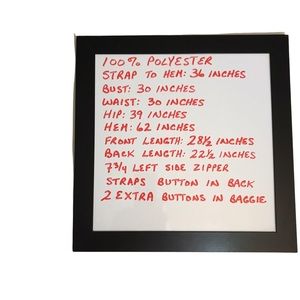 100% POLYESTER
STRAP TO HEM: 36 INCHES
BUST: 30 INCHES
WAIST: 30 INCHES
HIP: 39 INCHES
HEM: 62 INCHES
FRONT LENGTH: 28 1/2 INCHES
BACK LENGTH: 22 1/2 INCHES
7 3/4 LEFT SIDE ZIPPER
STRAPS BUTTON IN BACK
2 EXTRA BUTTONS IN BAGGIE